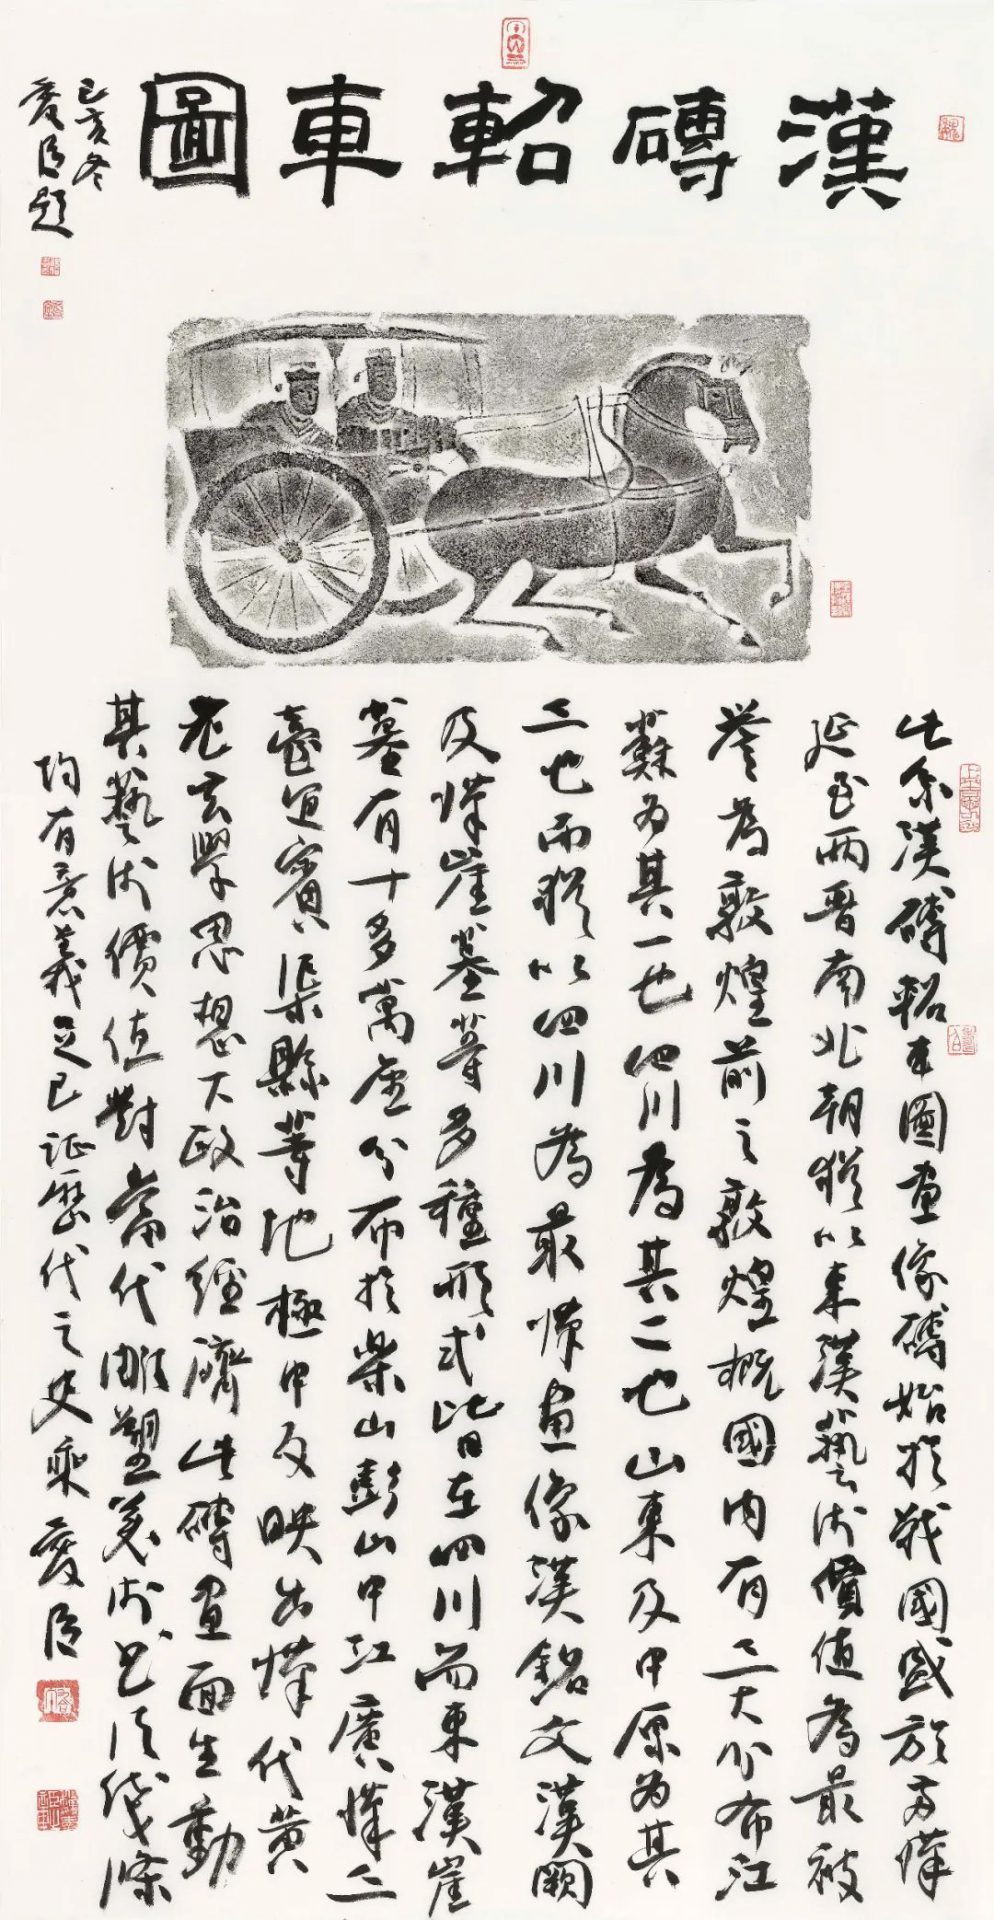 漢磚軺車圖
己亥冬
爰臣題
此系漢磚軺車圖畫像磚始於戰國盛於两漢
延至两晉南北朝猶以東漢藝術價值為最被
譽為敦煌前之敦煌概國内有三大分布江
蘇為其一也四川為其二也山東及中原為其
三也而猶以四川為最漢畫像漢銘文漢闕
及漢崖墓等多種形式皆在四川而東漢崖
墓有十多萬座分布於樂山彭山中江廣漢三
臺宜賓渠縣等地極中反映出漢代黄
老玄學思想大政治經濟此磚畫面生動
其藝術價值對當代雕塑美術书法線條
均有意義足已証歷代之史乘 爰臣